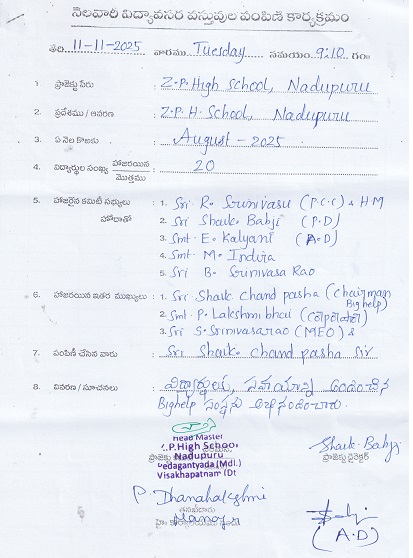 నెలవారీ విద్యావసర వస్తువుల పంపిణీ కార్యక్రమం
తేది 11-11-2025 వారము Tuesday సమయం 9:10 గం॥
1. ప్రాజెక్టు పేరు : Z.P. High School, Nadupuru
2. ప్రదేశము / ఆవరణ : Z.P.H. School, Nadupuru
3. ఏ నెల కొఱకు : August - 2025
4. విద్యార్థుల సంఖ్య హాజరయిన / మొత్తము : 20
5. హాజరైన కమిటీ సభ్యులు హోదాతో : 1. Sri R. Srinivasu (P.C.C) & HM
2. Sri Shaik. Babji (P.D)
3. Smt. E. Kalyani (A.D)
4. Smt. M. Indira
5. Sri B. Srinivasa Rao
6. హాజరయిన ఇతర ముఖ్యులు : 1. Sri Shaik Chand pasha (Chairman Bighelp)
2. Smt. P. Lakshmi bhai
3. Sri S. Srinivasarao (MEO) &
7. పంపిణీ చేసిన వారు : Sri Shaik. Chand pasha Sir
8. వివరణ / సూచనలు : విద్యార్థులకు, సహాయాన్ని అందించిన
Bighelp సంస్థను అభినందించారు.
Head Master
Z.P.High School
Nadupuru
Pedagantyada (Mdl.)
Visakhapatnam (Dt
Shaik. Babji
ప్రాజెక్టు డైరెక్టర్
P. Dhanalakshmi
Manoja
(A.D)